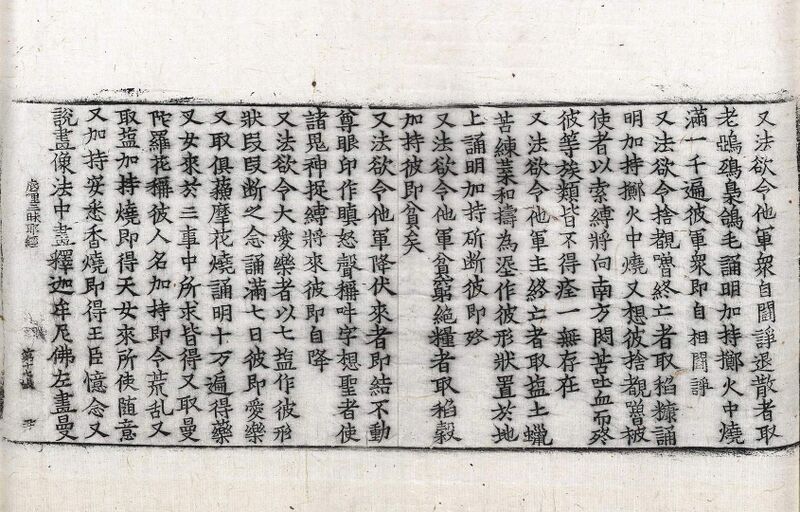 又法欲令他軍衆自鬪諍退散者取
老鵄鵶梟鴿毛誦明加持擲火中燒
滿一千遍彼軍衆即自相鬪諍
又法欲令捨覩嚕終亡者取稻糠誦
明加持擲火中燒又想彼捨覩嚕被
使者以索縛將向南方悶苦吐血而終
彼等族類皆不得痊一無存在
又法欲令他軍主終亡者取塩土蠟
苦練葉和擣為埿作彼形狀置於地
上誦明加持斫斷彼即終
又法欲令他軍貧窮絶糧者取稻穀
加持彼即貧矣
又法欲令他軍降伏來者即結不動
尊眼印作瞋怒聲稱吽字想聖者使
諸鬼神捉縛將來彼即自降
又法欲令大愛樂者以七塩作彼形
狀段段斷之念誦滿七日彼即愛樂
又取俱蘓摩花燒誦明十万遍得藥
叉女來於三事中所求皆得又取曼
陀羅花稱彼人名加持即令荒乱又
取塩加持燒即得天女來所使随意
又加持安悉香燒即得王臣憶念又
說畫像法中畫釋迦牟尼佛左畫曼
底哩三昧耶經